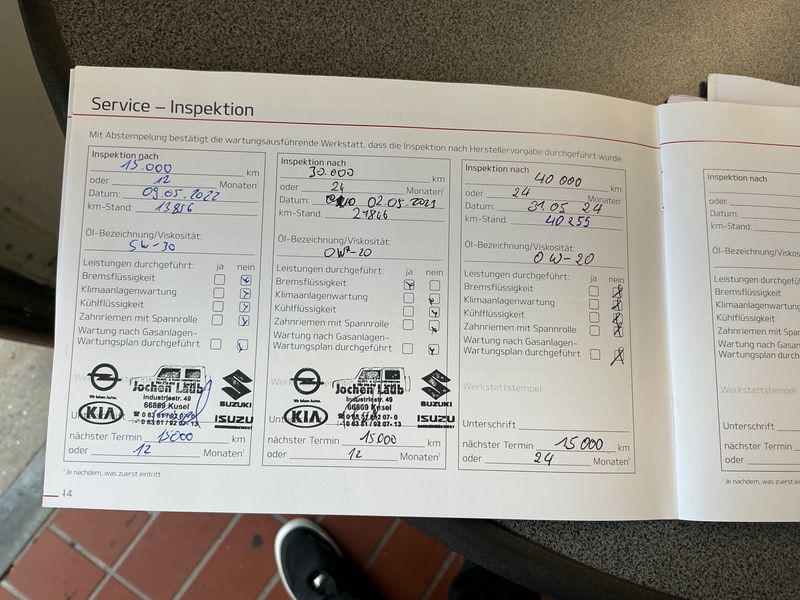 Service – Inspektion
Mit Abstempelung bestätigt die wartungsausführende Werkstatt, dass die Inspektion nach Herstellervorgabe durchgeführt wurde.
Inspektion nach
15.000 km
oder 12 Monaten¹
Datum: 09.05.2022
km-Stand: 13856
Öl-Bezeichnung/Viskosität:
5W-30
Leistungen durchgeführt: ja nein
Bremsflüssigkeit
Klimaanlagenwartung
Kühlflüssigkeit
Zahnriemen mit Spannrolle
Wartung nach Gasanlagen-
Wartungsplan durchgeführt
Jochen Laub
Industriestr. 49
66869 Kusel
KIA
SUZUKI
ISUZU
nächster Termin 15000 km
oder 12 Monaten¹
¹ Je nachdem, was zuerst eintritt.
14
Inspektion nach
30.000 km
oder 24 Monaten¹
Datum: 02.05.2023
km-Stand: 27846
Öl-Bezeichnung/Viskosität:
0W-20
Leistungen durchgeführt: ja nein
Bremsflüssigkeit
Klimaanlagenwartung
Kühlflüssigkeit
Zahnriemen mit Spannrolle
Wartung nach Gasanlagen-
Wartungsplan durchgeführt
Jochen Laub
Industriestr. 49
66869 Kusel
KIA
SUZUKI
ISUZU
nächster Termin 15000 km
oder 12 Monaten¹
Inspektion nach
40 000 km
oder 24 Monaten¹
Datum: 31.05 24
km-Stand: 40255
Öl-Bezeichnung/Viskosität:
0W-20
Leistungen durchgeführt: ja nein
Bremsflüssigkeit
Klimaanlagenwartung
Kühlflüssigkeit
Zahnriemen mit Spannrolle
Wartung nach Gasanlagen-
Wartungsplan durchgeführt
Werkstattstempel
Unterschrift
nächster Termin 15 000 km
oder 24 Monaten¹
Inspektion nach
oder
Datum:
km-Stand:
Öl-Bezeichnung/Viskos
Leistungen durchgefü
Bremsflüssigkeit
Klimaanlagenwartung
Kühlflüssigkeit
Zahnriemen mit Span
Wartung nach Gasanl
Wartungsplan durchg
Werkstattstempel
Unterschrift
nächster Termin
oder
¹ Je nachdem, was zuerst ein